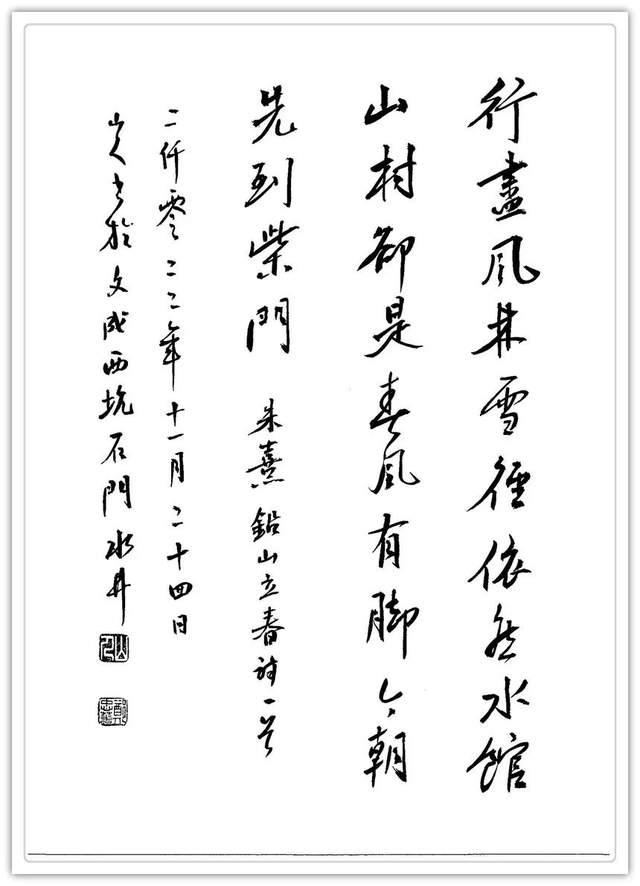 行盡風林雪徑依然水館
山村卻是春風有腳今朝
先到柴門 朱熹鉛山立春詩一首
二仟零二二年十一月二十四日
山人書於文成西坑石門水井